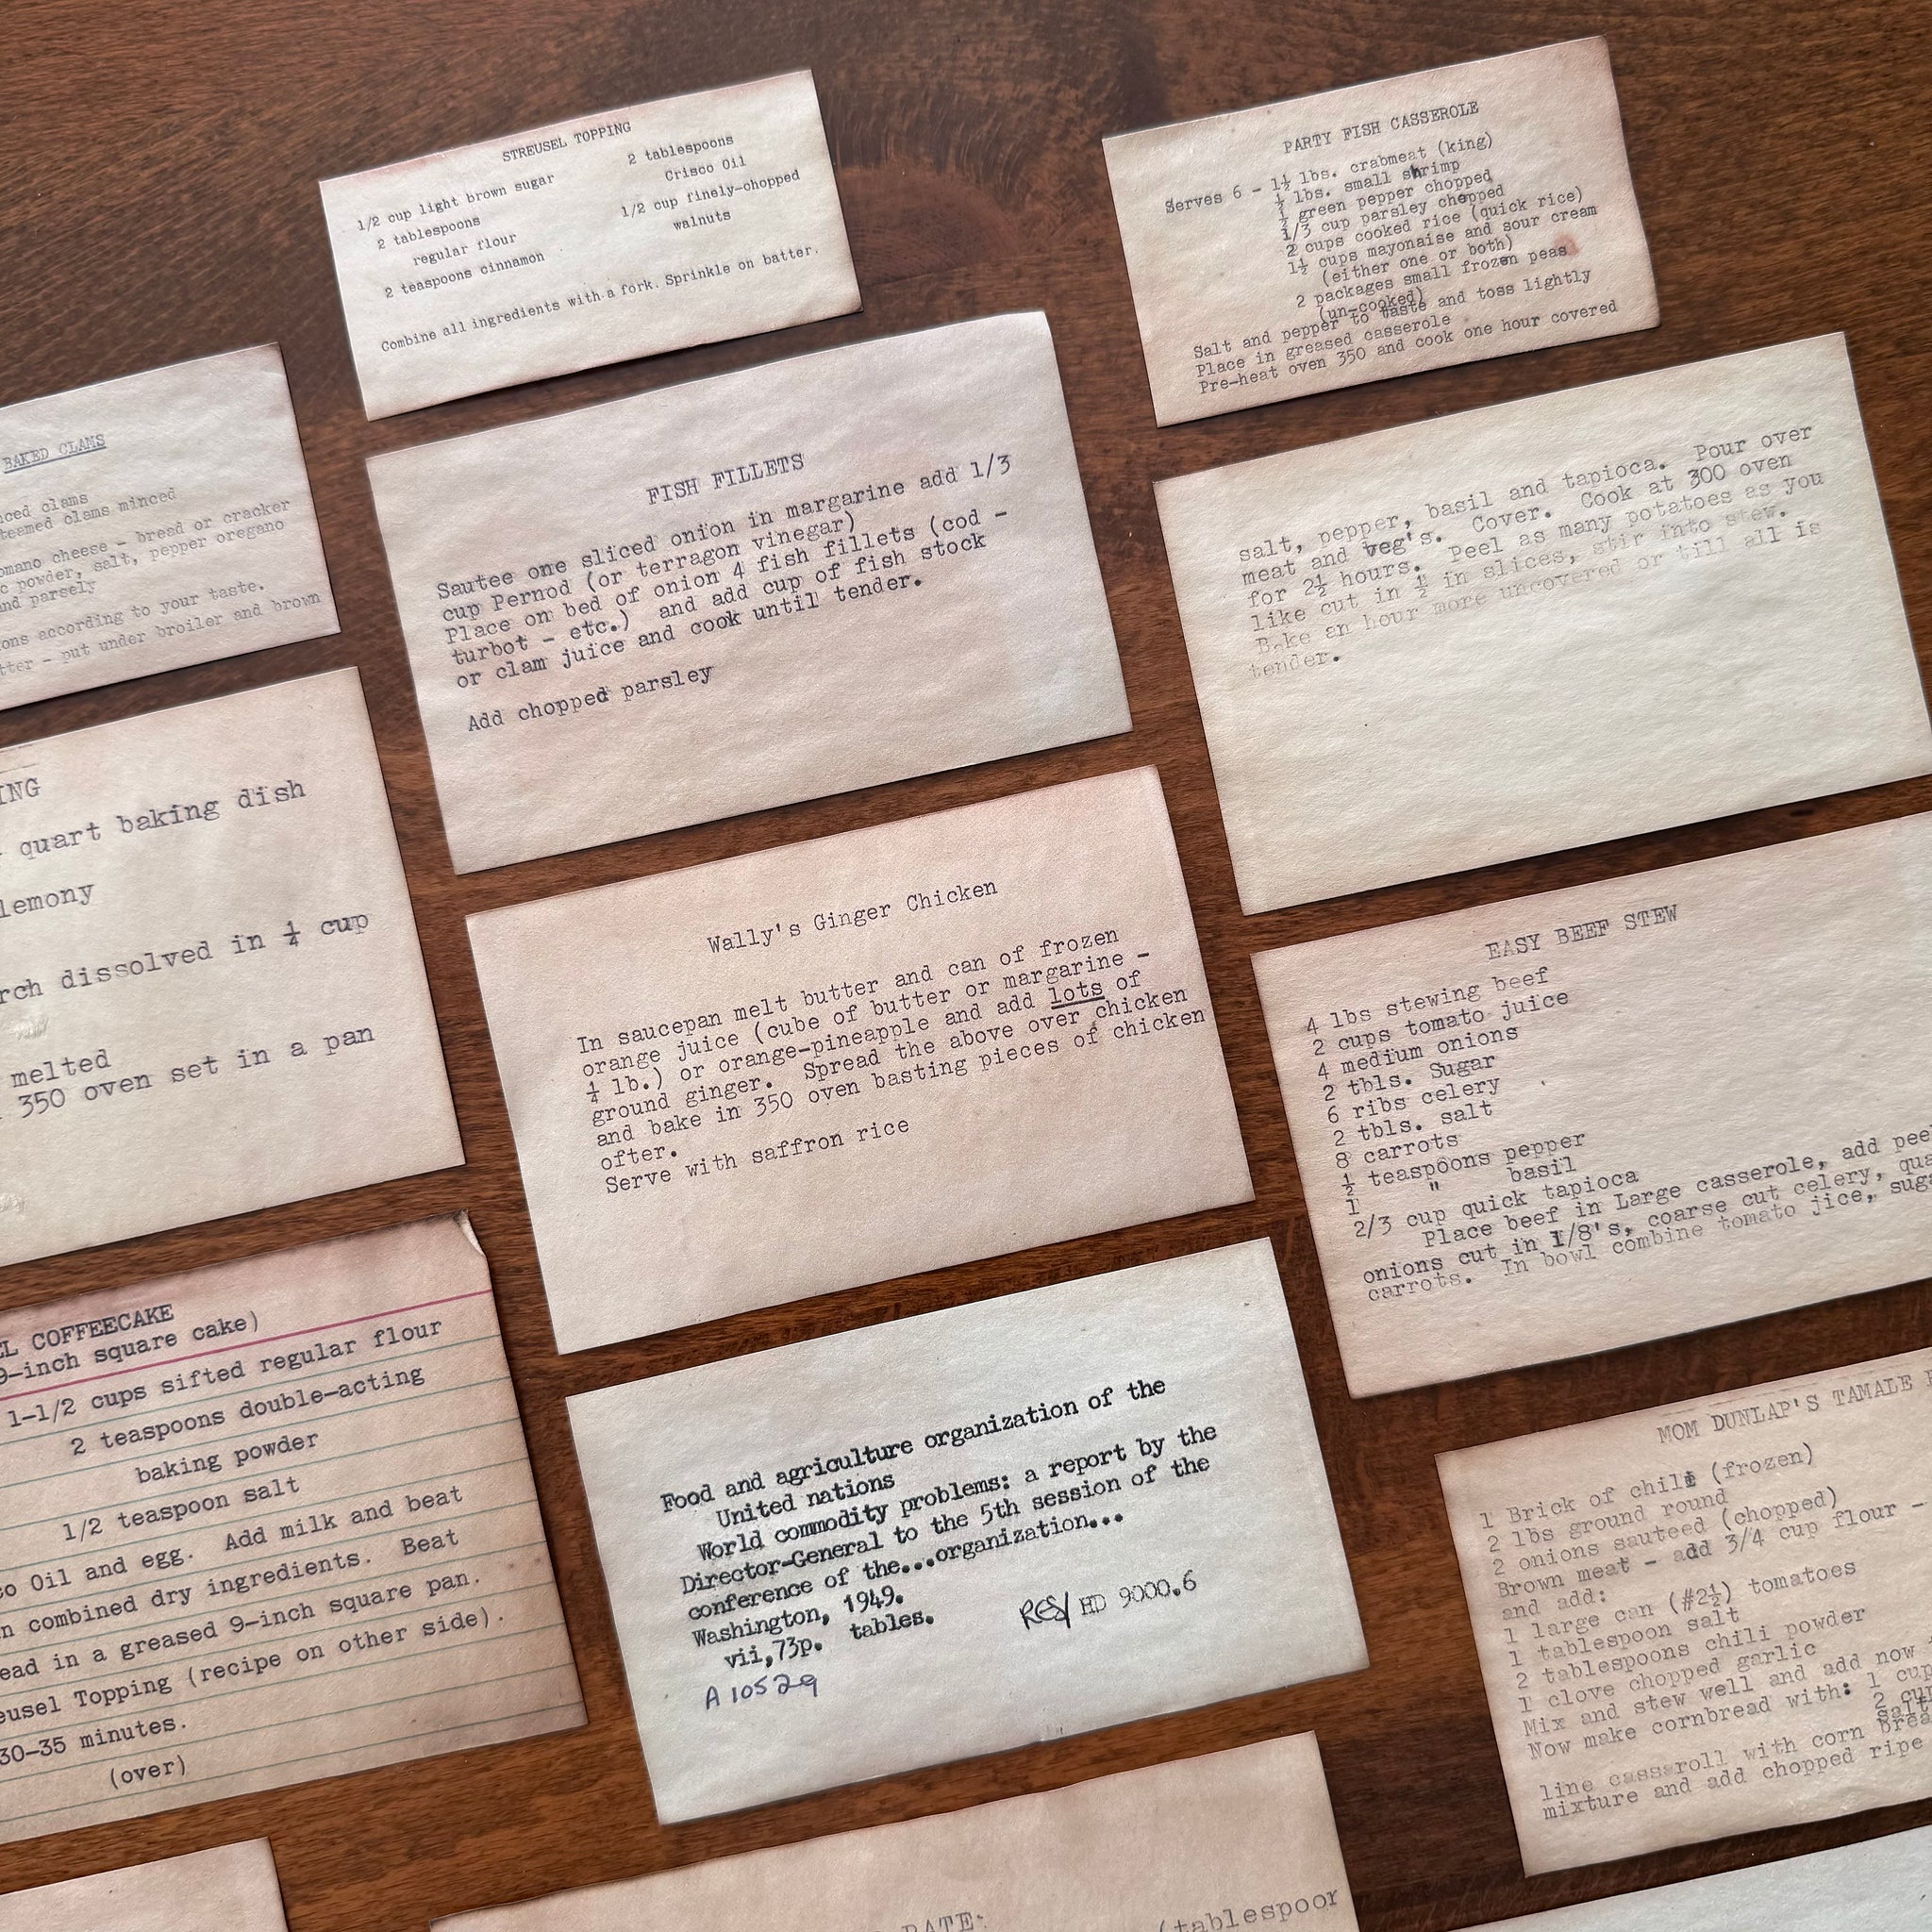 STREUSEL TOPPING
1/2 cup light brown sugar
2 tablespoons
regular flour
2 teaspoons cinnamon
2 tablespoons
Crisco Oil
1/2 cup finely-chopped
walnuts
Combine all ingredients with a fork. Sprinkle on batter.
PARTY FISH CASSEROLE
Serves 6 - 1½ lbs. crabmeat (king)
½ lbs. small shrimp
½ green pepper chopped
1/3 cup parsley chopped
2 cups cooked rice (quick rice)
1½ cups mayonaise and sour cream
(either one or both)
2 packages small frozen peas
(un-cooked)
Salt and pepper to taste and toss lightly
Place in greased casserole
Pre-heat oven 350 and cook one hour covered
BAKED CLAMS
clams
teamed clams minced
omano cheese - bread or cracker
c powder, salt, pepper oregano
nd parsely
ons according to your taste.
tter - put under broiler and brown
FISH FILLETS
Sautee one sliced onion in margarine add 1/3
cup Pernod (or terragon vinegar)
Place on bed of onion 4 fish fillets (cod -
turbot - etc.) and add cup of fish stock
or clam juice and cook until tender.
Add chopped parsley
salt, pepper, basil and tapioca. Pour over
meat and veg's. Cover. Cook at 300 oven
for 2½ hours. Peel as many potatoes as you
like cut in ½ in slices, stir into stew.
Bake an hour more uncovered or till all is
tender.
ING
quart baking dish
lemony
rch dissolved in ¼ cup
melted
350 oven set in a pan
Wally's Ginger Chicken
In saucepan melt butter and can of frozen
orange juice (cube of butter or margarine -
¼ lb.) or orange-pineapple and add lots of
ground ginger. Spread the above over chicken
and bake in 350 oven basting pieces of chicken
ofter.
Serve with saffron rice
EASY BEEF STEW
4 lbs stewing beef
2 cups tomato juice
4 medium onions
2 tbls. Sugar
6 ribs celery
2 tbls. salt
8 carrots
½ teaspoons pepper
1 " basil
2/3 cup quick tapioca
Place beef in Large casserole, add pee
onions cut in 1/8's, coarse cut celery, qua
carrots. In bowl combine tomato jice, suga
EL COFFEECAKE
9-inch square cake)
1-1/2 cups sifted regular flour
2 teaspoons double-acting
baking powder
1/2 teaspoon salt
co Oil and egg. Add milk and beat
n combined dry ingredients. Beat
ead in a greased 9-inch square pan.
eusel Topping (recipe on other side).
30-35 minutes.
(over)
Food and agriculture organization of the
United nations
World commodity problems: a report by the
Director-General to the 5th session of the
conference of the...organization...
Washington, 1949.
vii,73p. tables.
RES/ HD 9000.6
A 10529
MOM DUNLAP'S TAMALE
1 Brick of chili (frozen)
2 lbs ground round
2 onions sauteed (chopped)
Brown meat - add 3/4 cup flour -
and add:
1 large can (#2½) tomatoes
1 tablespoon salt
2 tablespoons chili powder
1 clove chopped garlic
Mix and stew well and add now
Now make cornbread with: 1 cup
2 cup
salt
line cassaroll with corn brea
mixture and add chopped ripe
(tablespoon